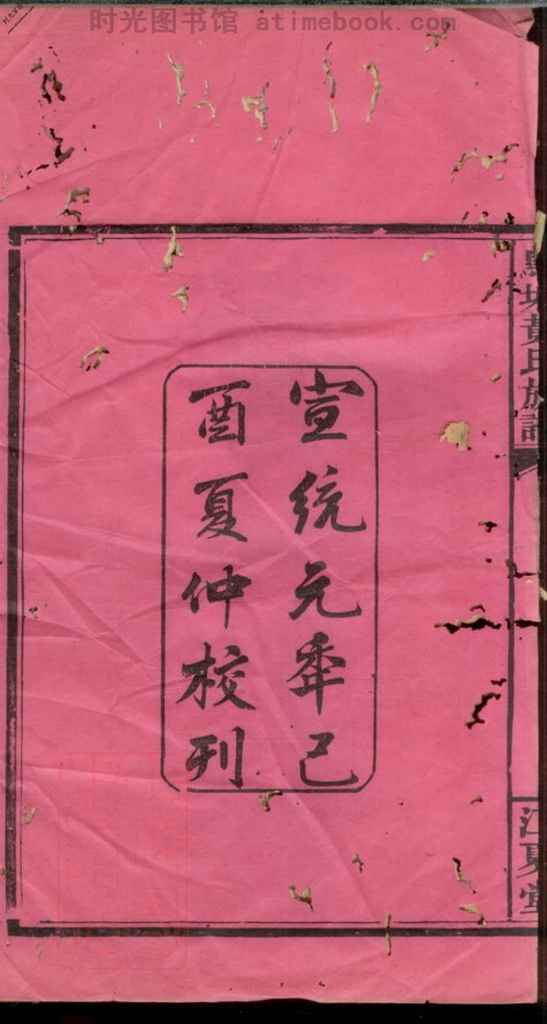 时光图书馆 atimebook.com
宣統元年己
酉夏仲校刊
黃氏族譜
江夏堂